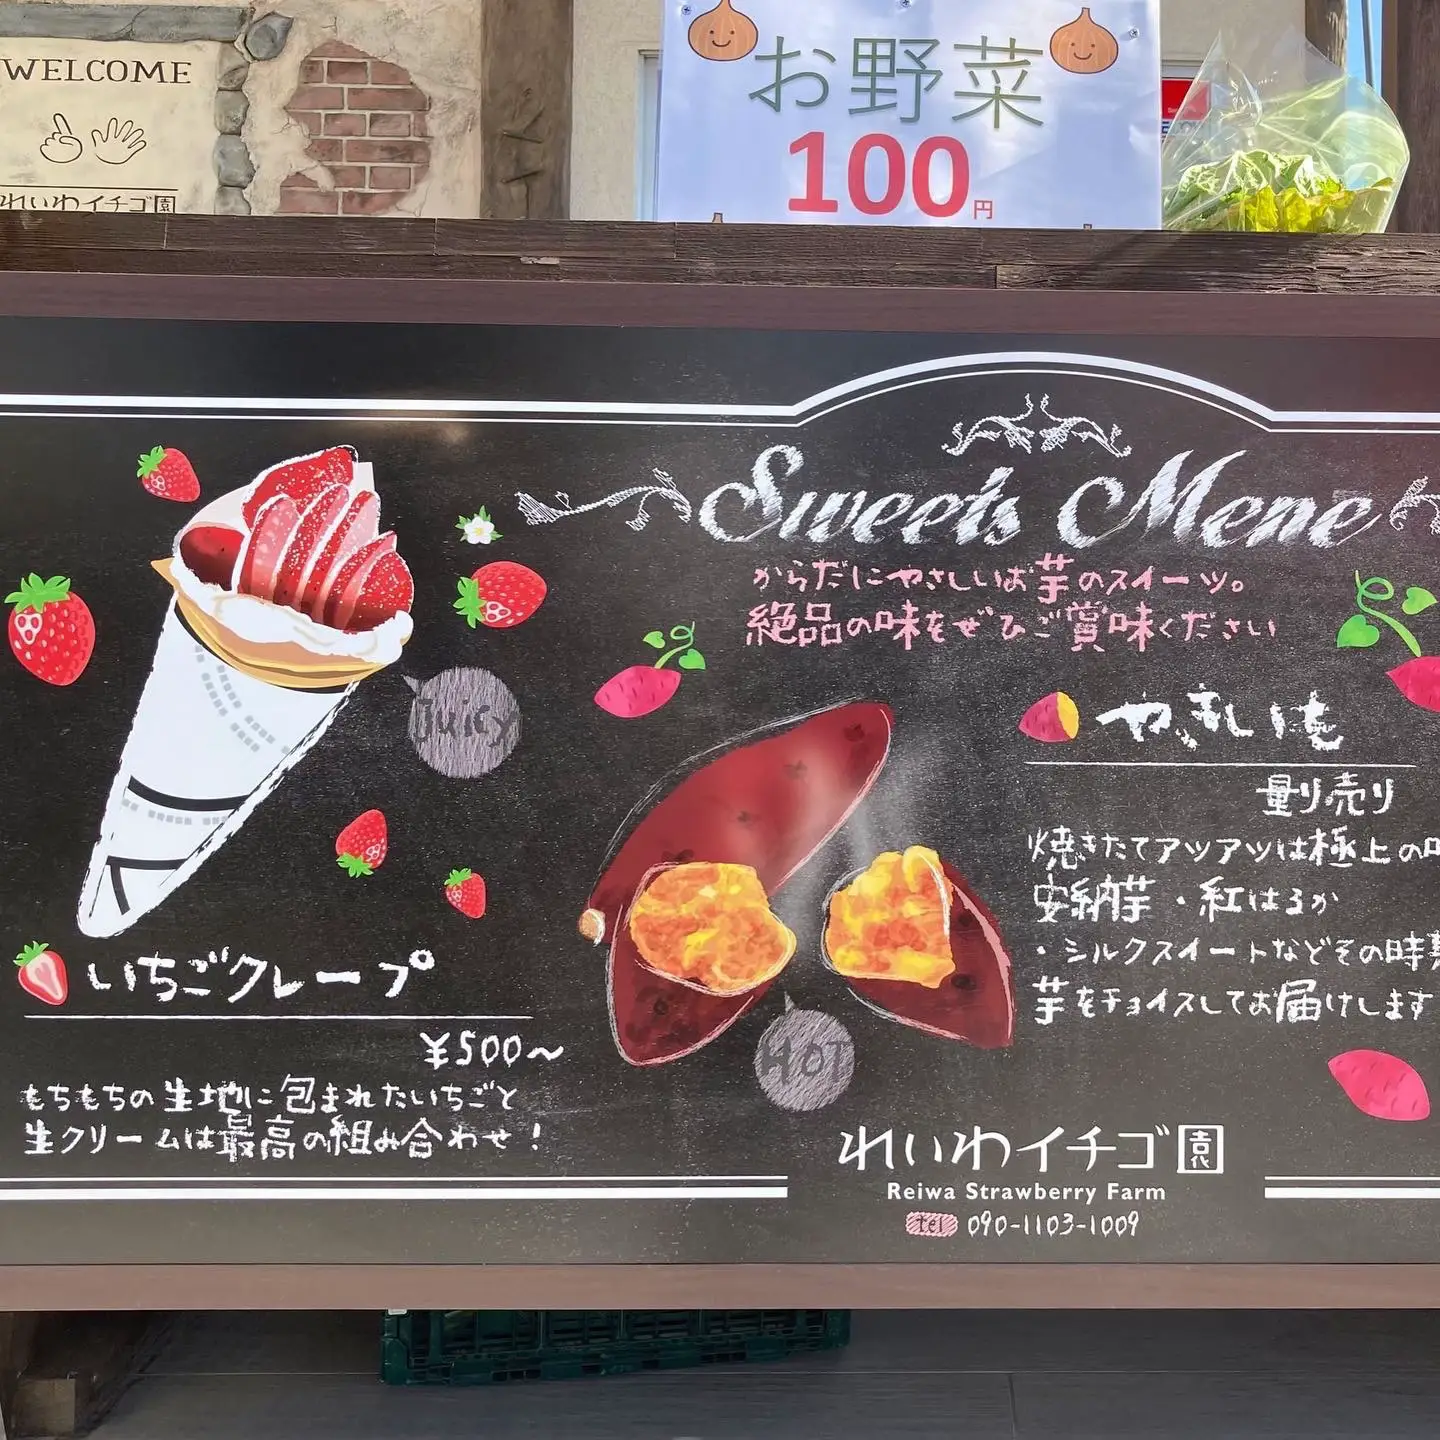 WELCOME
れいわイチゴ園
お野菜
100円
Sweets Menu
からだにやさしいお芋のスイーツ。
絶品の味をぜひご賞味ください
Juicy
いちごクレープ
¥500~
もちもちの生地に包まれたいちごと
生クリームは最高の組み合わせ!
やきいも
量り売り
焼きたてアツアツは極上の
安納芋・紅はるか
・シルクスイートなどその時
芋をチョイスしてお届けします
HOT
れいわイチゴ園
Reiwa Strawberry Farm
tel 090-1103-1009